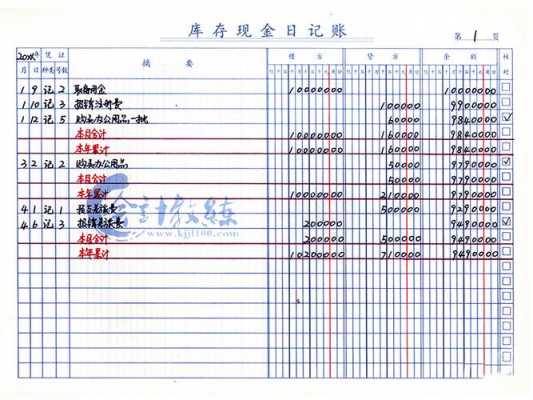 库存现金日记账
第 1 页
20XX年 凭证 摘要 借方 贷方 余额 核对
月 日 种类 号数
1 9 记 2 取备用金 1000000 1000000
1 10 记 3 报销注册费 100000 9900000
1 12 记 5 购买办公用品一批 60000 9840000 ✓
本月合计 1000000 160000 9840000
本年累计 1000000 160000 9840000
3 2 记 2 购买办公用品 50000 9790000 ✓
本月合计 50000 9790000
本年累计 10000000 210000 9790000
4 1 记 1 差旅费 500000 9290000
4 6 记 3 报销差旅费 200000 9490000 ✓
本月合计 200000 500000 9490000
本年累计 10200000 710000 9490000
会计教练
www.kjjl100.com